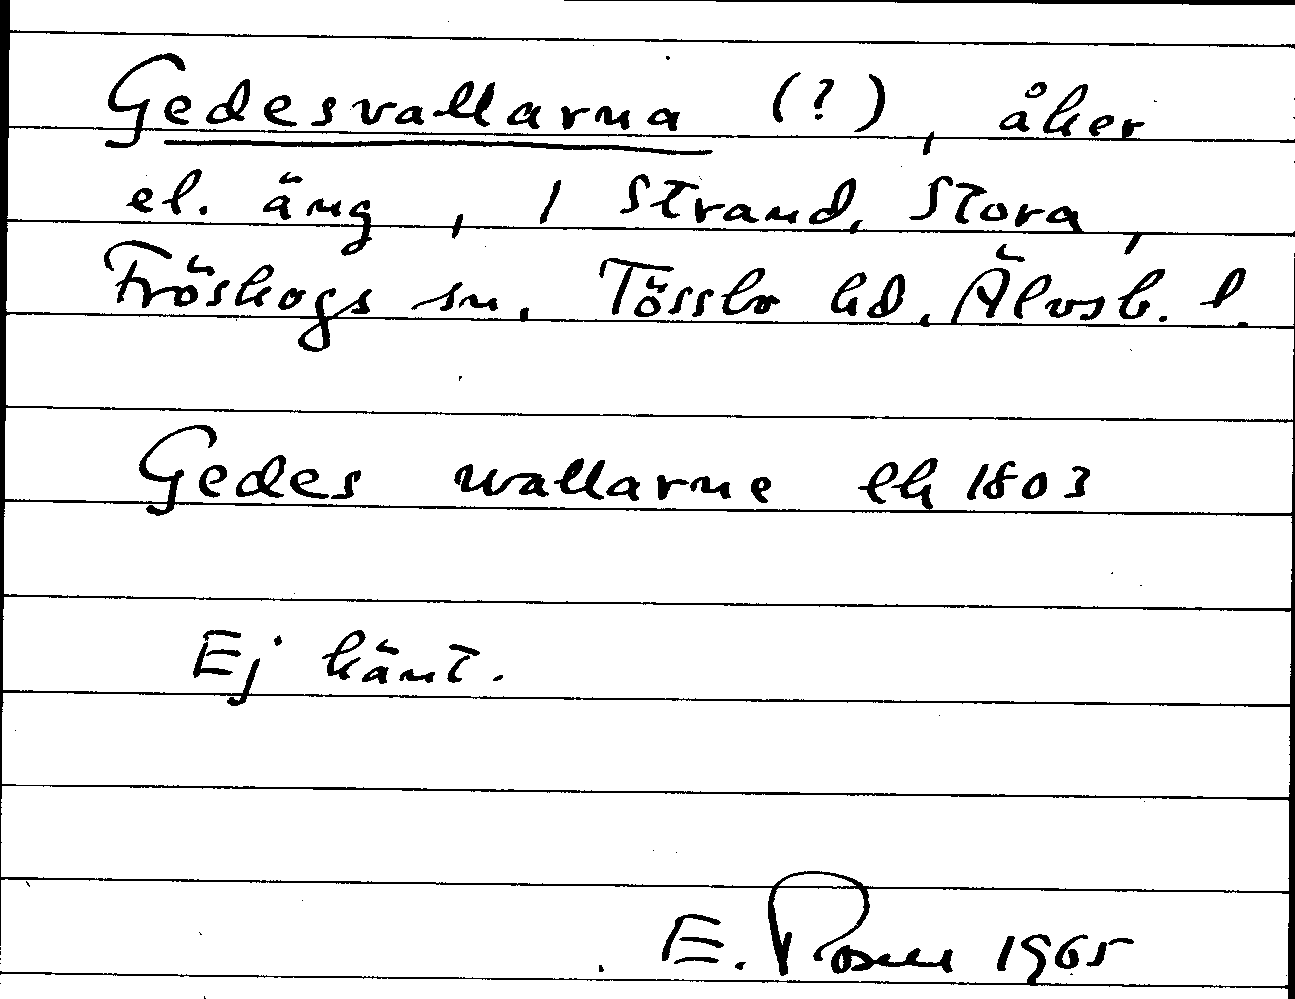 Gedesvallarna (?), åker
el. äng, 1 Strand, Stora,
Fröskogs sn. Tössbo hd. Älvsb. l.
Gedes wallarne lh 1803
Ej känt.
E. Rosell 1965